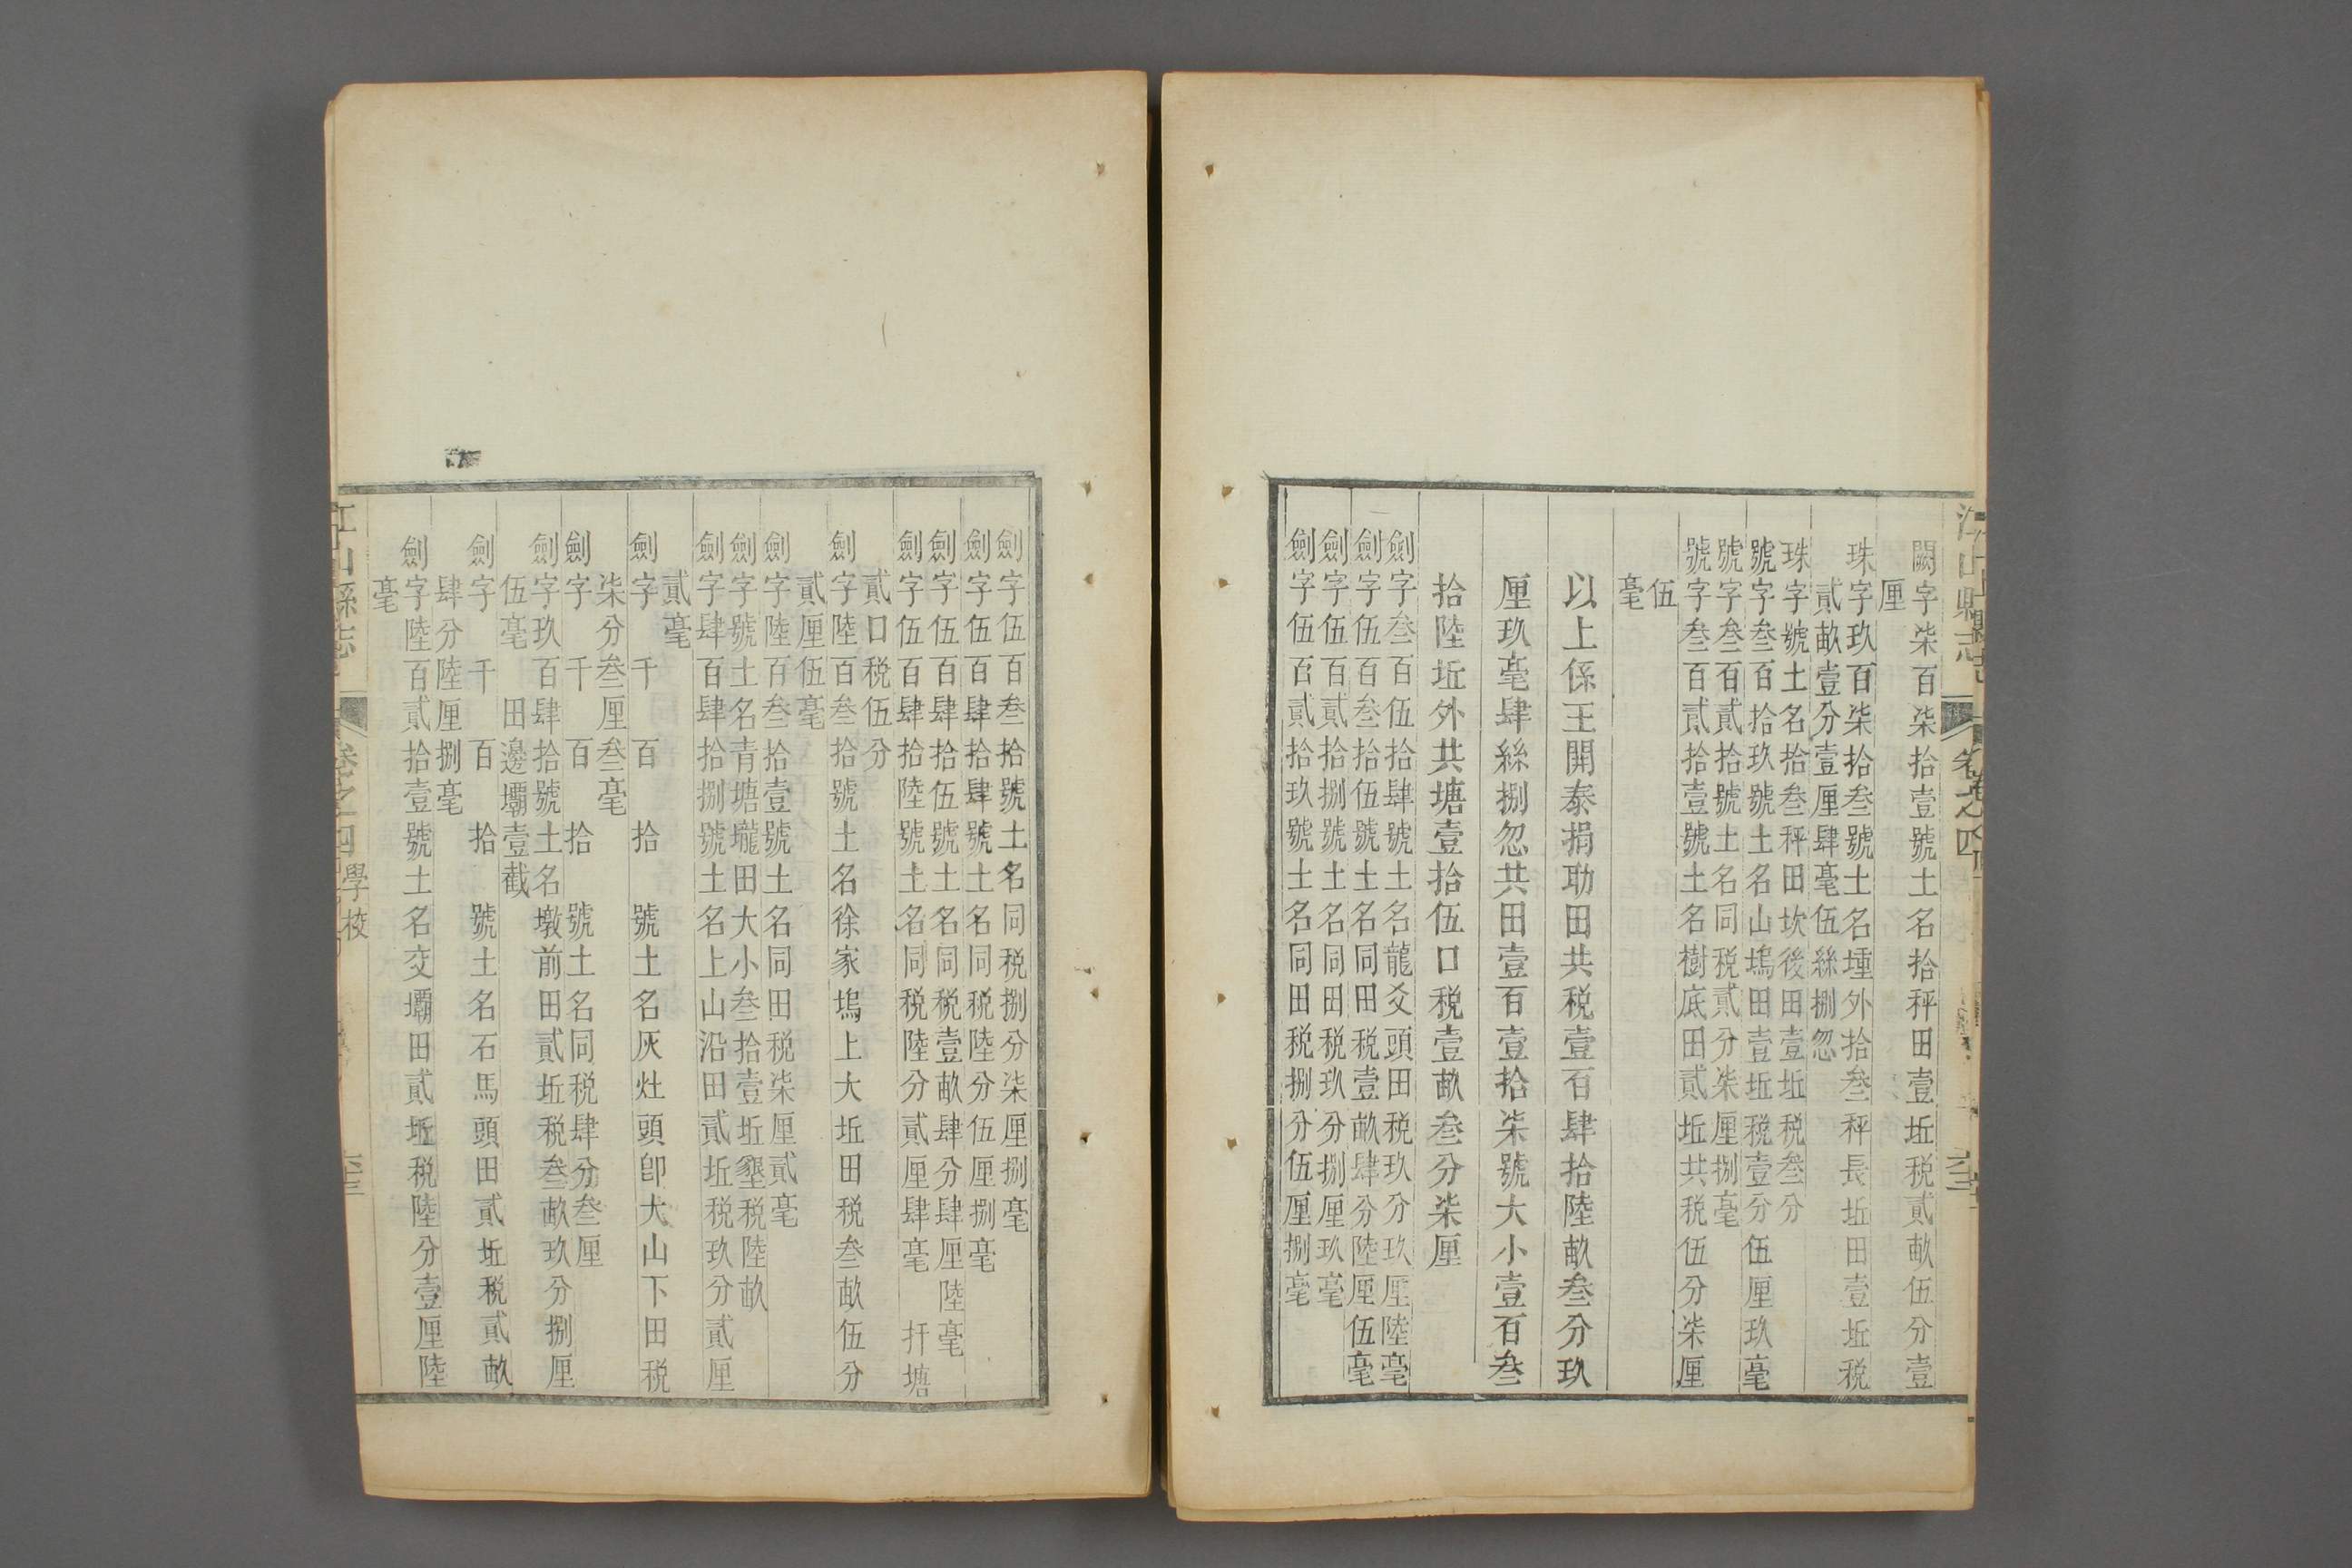 闕字柒百柒拾壹號土名拾秤田壹坵税貳畝伍分壹
厘
珠字玖百柒拾叁號土名堹外拾叁秤長坵田壹坵税
貳畝壹分壹厘肆毫伍絲捌忽
珠字號土名拾叁秤田坎後田壹坵税叁分
號字叁百拾玖號土名山塢田壹坵税壹分伍厘玖毫
號字叁百貳拾號土名同税貳分柒厘捌毫
號字叁百貳拾壹號土名樹底田貳坵共税伍分柒厘
伍
毫
以上係王開泰捐助田共税壹百肆拾陸畝叁分玖
厘玖毫肆絲捌忽共田壹百壹拾柒號大小壹百叁
拾陸坵外共塘壹拾伍口税壹畝叁分柒厘
劍字叁百伍拾肆號土名龍爻頭田税玖分玖厘陸毫
劍字伍百叁拾伍號土名同田税壹畝肆分陸厘伍毫
劍字伍百貳拾捌號土名同田税玖分捌厘玖毫
劍字伍百貳拾玖號土名同田税捌分伍厘捌毫
江山縣志
卷之四
劍字伍百叁拾號土名同税捌分柒厘捌毫
劍字伍百肆拾肆號土名同税陸分伍厘捌毫
劍字伍百肆拾伍號土名同税壹畝肆分肆厘陸毫
劍字伍百肆拾陸號土名同税陸分貳厘肆毫 扦塘
貳口税伍分
劍字陸百叁拾號土名徐家塢上大坵田税叁畝伍分
貳厘伍毫
劍字陸百叁拾壹號土名同田税柒厘貳毫
劍字號土名青塘壠田大小叁拾壹坵墾税陸畝
劍字肆百肆拾捌號土名上山沿田貳坵税玖分貳厘
貳毫
劍字 千 百 拾 號土名灰灶頭卽犬山下田税
柒分叁厘叁毫
劍字 千 百 拾 號土名同税肆分叁厘
劍字玖百肆拾號土名墩前田貳坵税叁畝玖分捌厘
伍毫 田邊壩壹截
劍字 千 百 拾 號土名石馬頭田貳坵税貳畝
肆分陸厘捌毫
劍字陸百貳拾壹號土名交壩田貳坵税陸分壹厘陸
毫
江山縣志 卷之四 學校